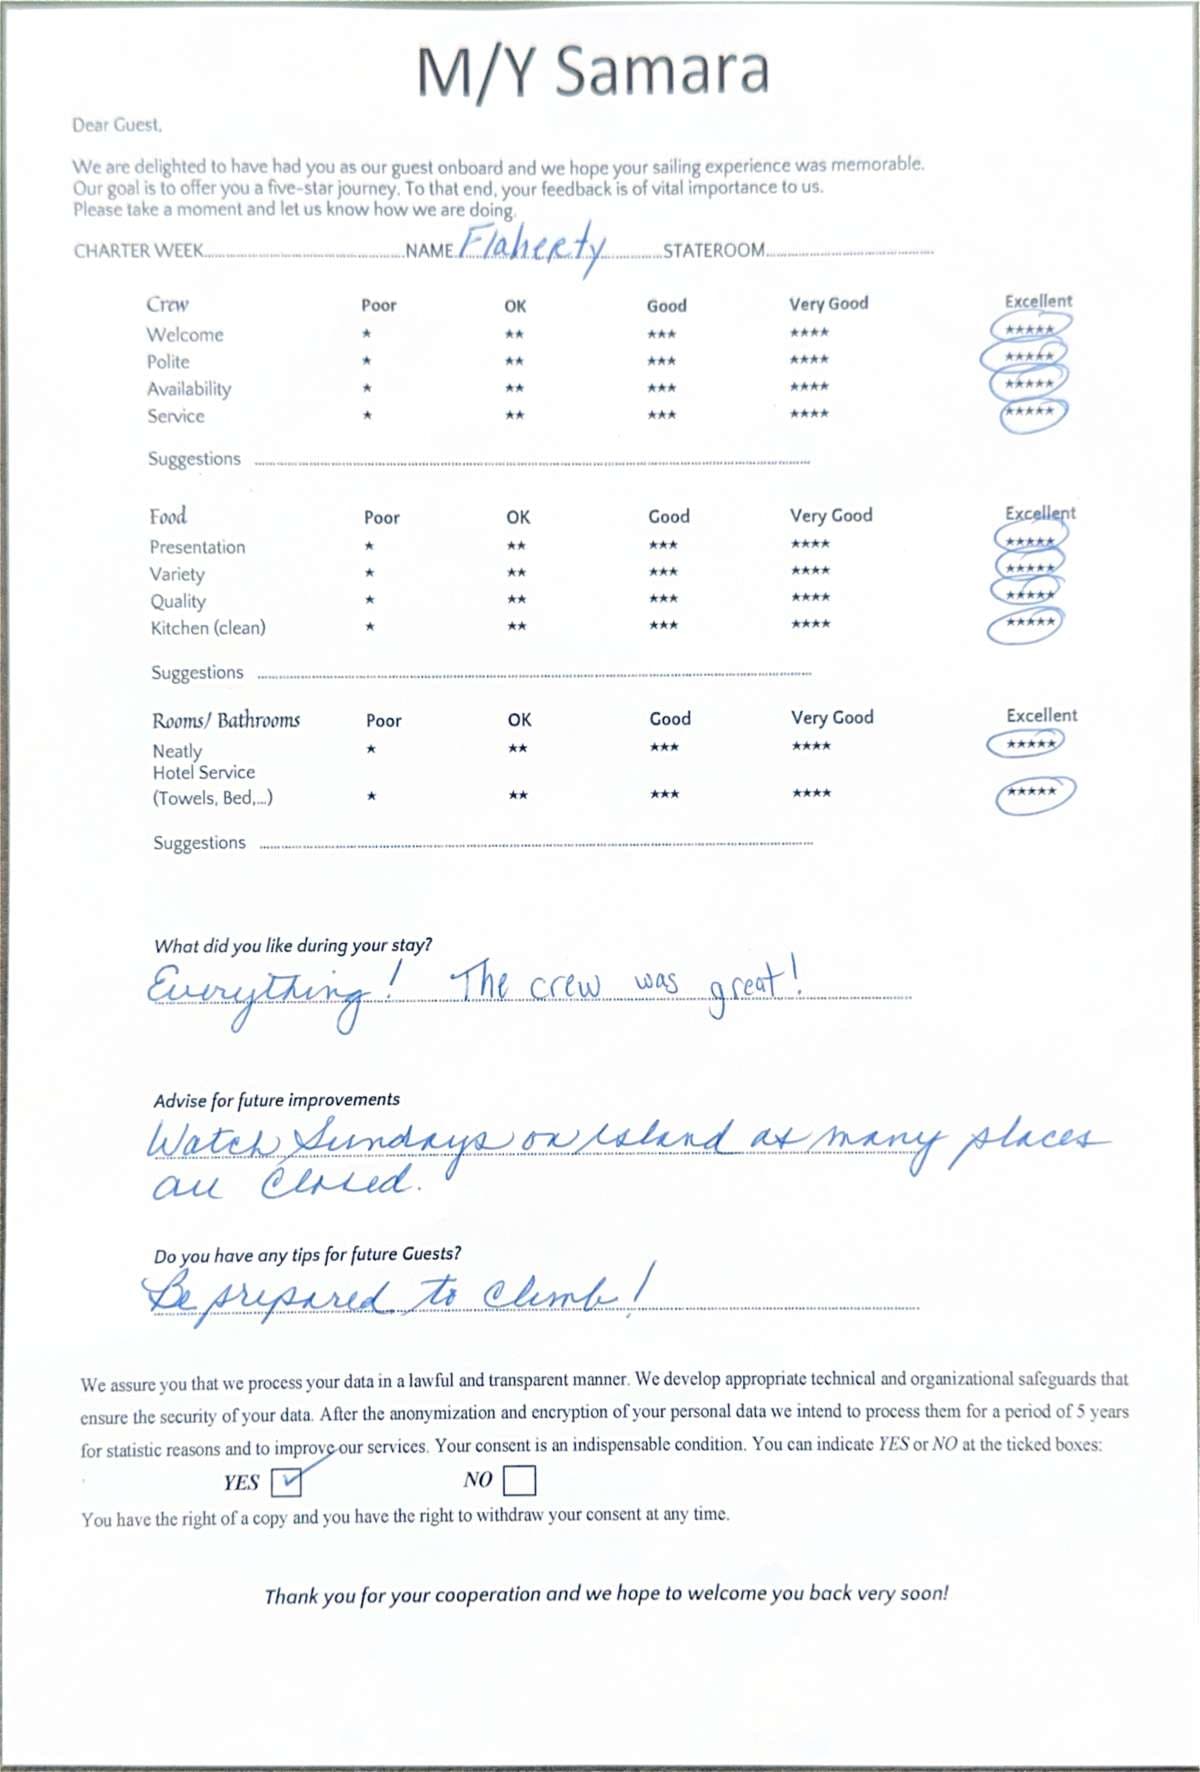 M/Y Samara
Dear Guest,
We are delighted to have had you as our guest onboard and we hope your sailing experience was memorable.
Our goal is to offer you a five-star journey. To that end, your feedback is of vital importance to us.
Please take a moment and let us know how we are doing.
CHARTER WEEK NAME Flaherty STATEROOM
Crew Poor OK Good Very Good Excellent
Welcome ★ ★★ ★★★ ★★★★ ★★★★★
Polite ★ ★★ ★★★ ★★★★ ★★★★★
Availability ★ ★★ ★★★ ★★★★ ★★★★★
Service ★ ★★ ★★★ ★★★★ ★★★★★
Suggestions
Food Poor OK Good Very Good Excellent
Presentation ★ ★★ ★★★ ★★★★ ★★★★★
Variety ★ ★★ ★★★ ★★★★ ★★★★★
Quality ★ ★★ ★★★ ★★★★ ★★★★★
Kitchen (clean) ★ ★★ ★★★ ★★★★ ★★★★★
Suggestions
Rooms/ Bathrooms Poor OK Good Very Good Excellent
Neatly ★ ★★ ★★★ ★★★★ ★★★★★
Hotel Service
(Towels, Bed,...) ★ ★★ ★★★ ★★★★ ★★★★★
Suggestions
What did you like during your stay?
Everything! The crew was great!
Advise for future improvements
Watch Sundays on island as many places
are closed.
Do you have any tips for future Guests?
Be prepared to climb!
We assure you that we process your data in a lawful and transparent manner. We develop appropriate technical and organizational safeguards that
ensure the security of your data. After the anonymization and encryption of your personal data we intend to process them for a period of 5 years
for statistic reasons and to improve our services. Your consent is an indispensable condition. You can indicate YES or NO at the ticked boxes:
YES NO
You have the right of a copy and you have the right to withdraw your consent at any time.
Thank you for your cooperation and we hope to welcome you back very soon!